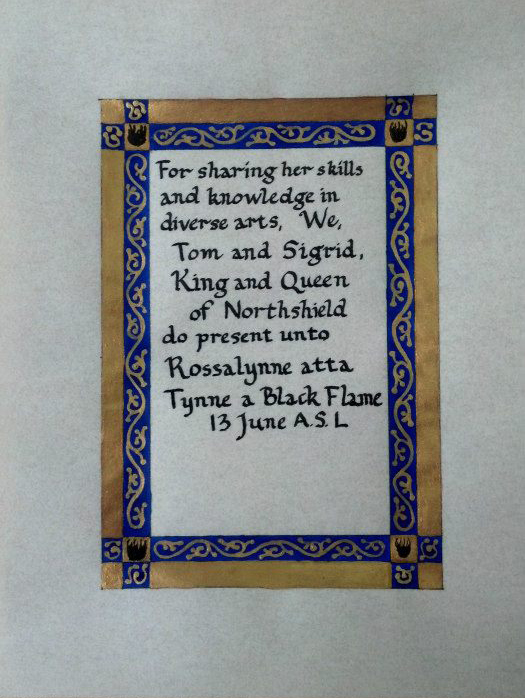 For sharing her skills
and knowledge in
diverse arts, We,
Tom and Sigrid,
King and Queen
of Northshield
do present unto
Rossalynne atta
Tynne a Black Flame
13 June A.S. L